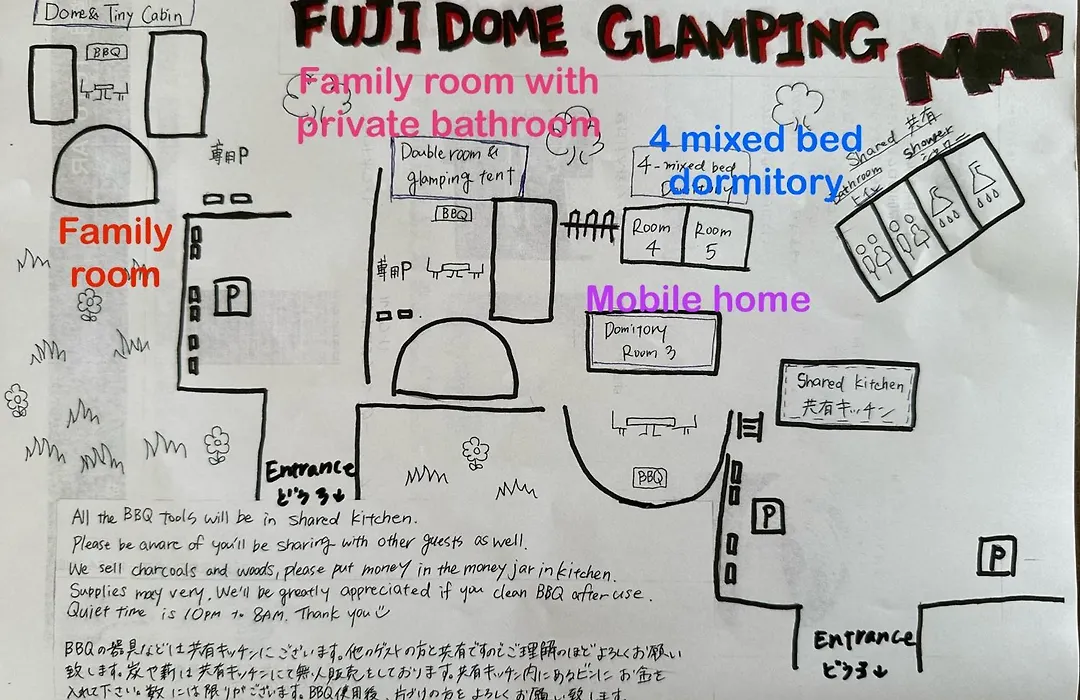 Dome & Tiny Cabin
FUJI DOME GLAMPING MAP
BBQ
Family room with
private bathroom
専用P
Double room &
glamping tent
4 mixed bed
dormitory
4-mixed bed
Shared 共有
Bathroom shower
トイレ シャワー
Family
room
BBQ
Room
4
Room
5
専用P
P
Mobile home
Domitory
Room 3
Shared kitchen
共有キッチン
BBQ
Entrance
どうろ↓
P
P
Entrance
どうろ↓
All the BBQ tools will be in shared kitchen.
Please be aware of you'll be sharing with other guests as well.
We sell charcoals and woods, please put money in the money jar in kitchen.
Supplies may very. We'll be greatly appreciated if you clean BBQ after use.
Quiet time is 10pm to 8AM. Thank you
BBQの器具などは共有キッチンにございます。他のゲストの方と共有ですのでご理解のほどよろしくお願い
致します。炭や薪は共有キッチンにて無人販売をしております。共有キッチン内にあるビンにお金を
入れて下さい。数には限りがございます。BBQ使用後、片づけの方をよろしくお願い致します。